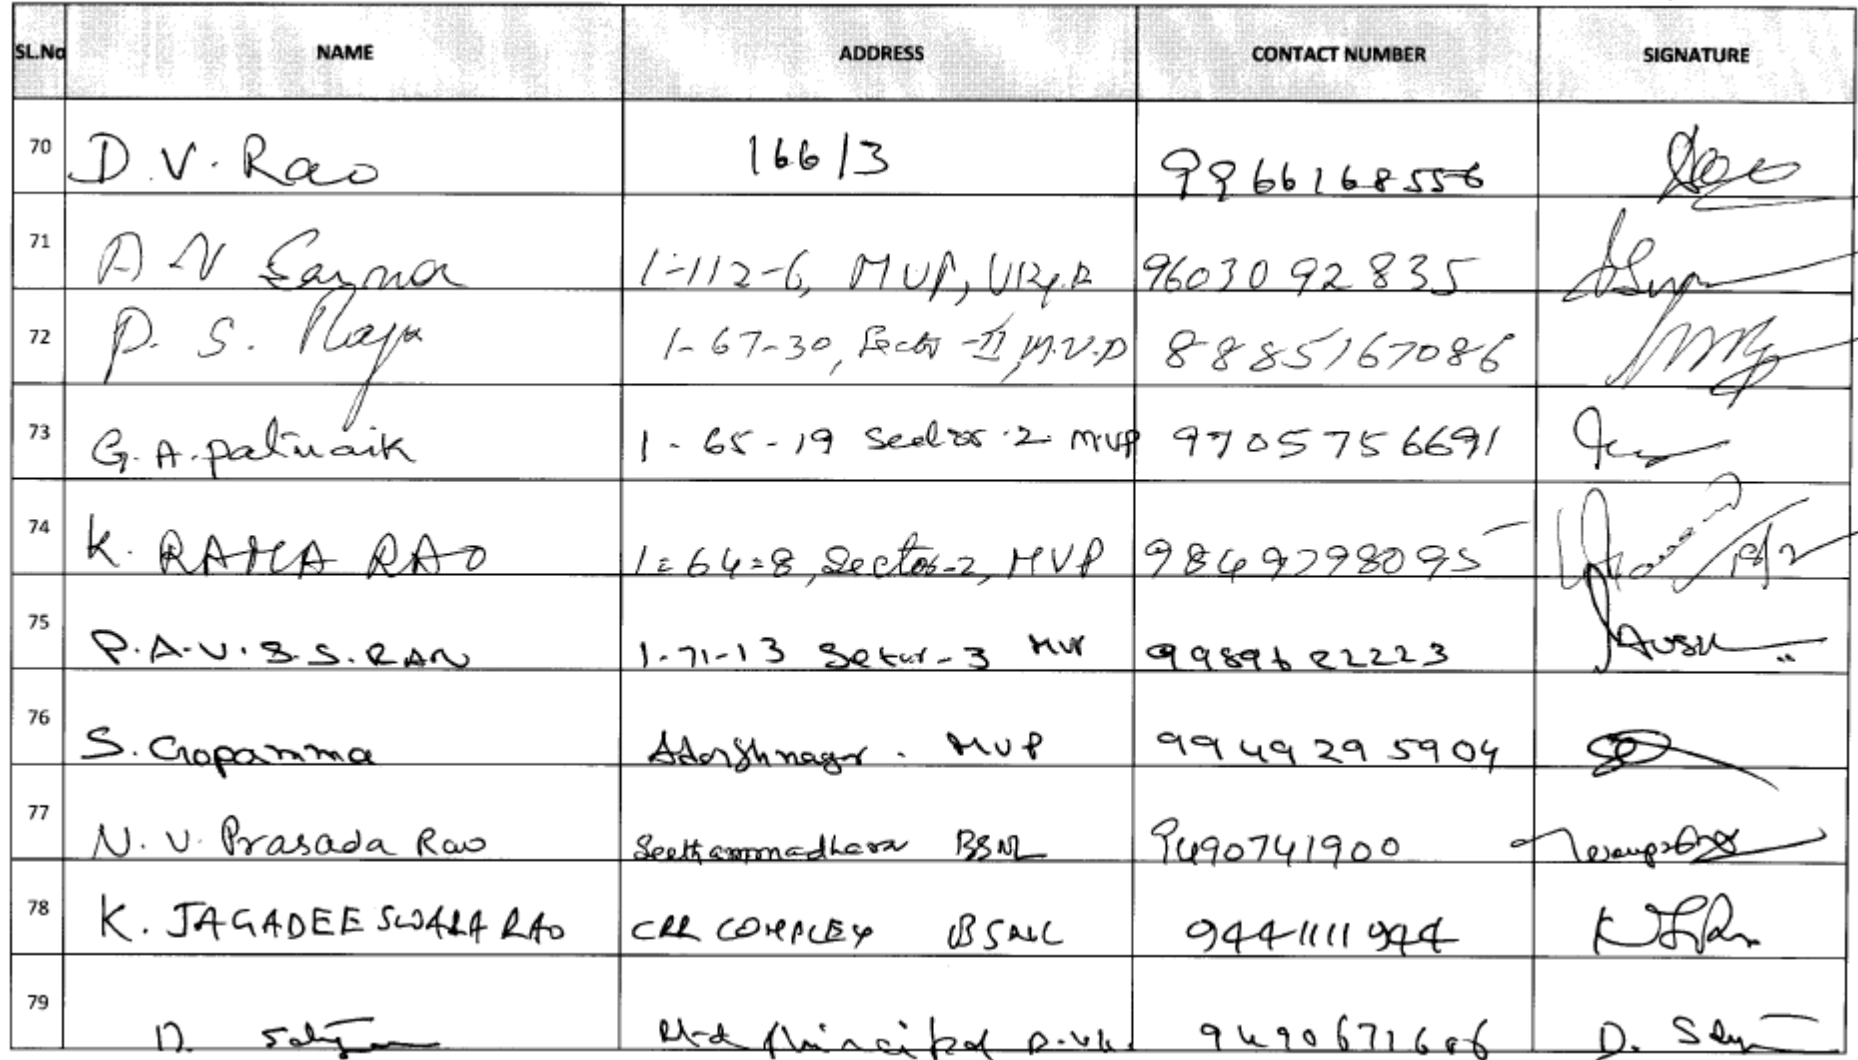 SL.No NAME ADDRESS CONTACT NUMBER SIGNATURE
70 D.V. Rao 166/3 9966168556
71 A N Sarma 1-112-6, MVP, 9603092835
72 P. S. Raju 1-67-30, Sector -II, M.V.P 8885167086
73 G.A.patnaik 1-65-19 Sector-2 MVP 9705756691
74 K. RAMA RAO 1=64=8, Sector-2, MVP 9849798095
75 P.A.V.S.S.RAO 1-71-13 Sector-3 MVP 9989622223
76 S. Gopamma Adarshnagar. MVP 9949295904
77 N. V. Prasada Rao Seethammadhara BSNL 9490741900
78 K. JAGADEESWARA RAO CRR COMPLEX BSNL 9441111944
79 D.